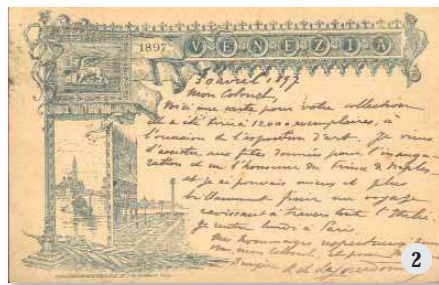 1897
VENEZIA
30 avril 1897
Mon Colonel,
Voici une carte pour votre collection
Elle a été tirée à 12000 exemplaires, à
l'occasion de l'exposition d'art. Je viens
d'assister aux fêtes données pour l'inaugu-
ration et en l'honneur du Prince de Naples
et je
un voyage
ravissant à travers toute l'Italie.
Je rentre lundi à Paris.
Mes hommages respectueux
mon colonel, et pour
2